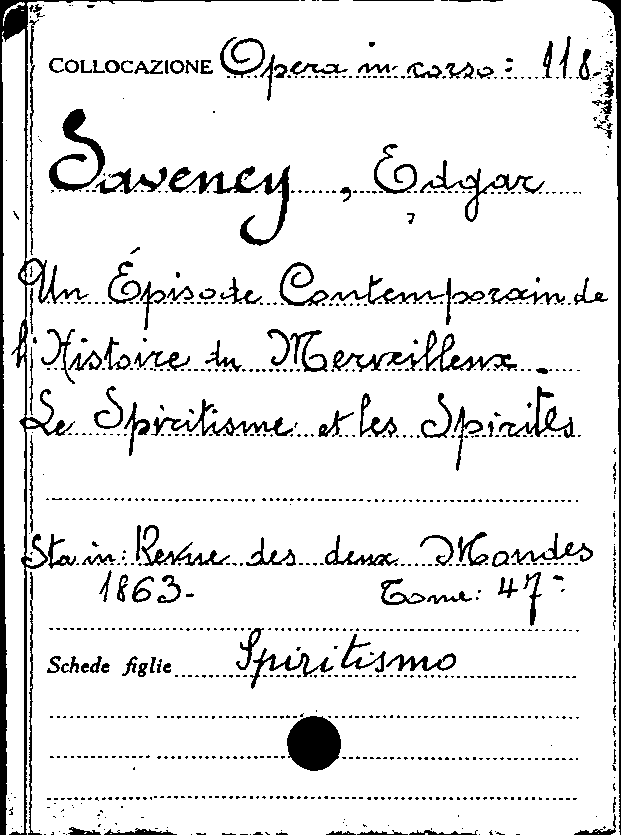 COLLOCAZIONE Opera in corso: 118.
Saveney, Edgar
Un Épisode Contemporain de
l'Histoire du Merveilleux.
Le Spiritisme et les Spirites
Sta in: Revue des deux Mondes
1863- Tome: 47=
Schede figlie Spiritismo